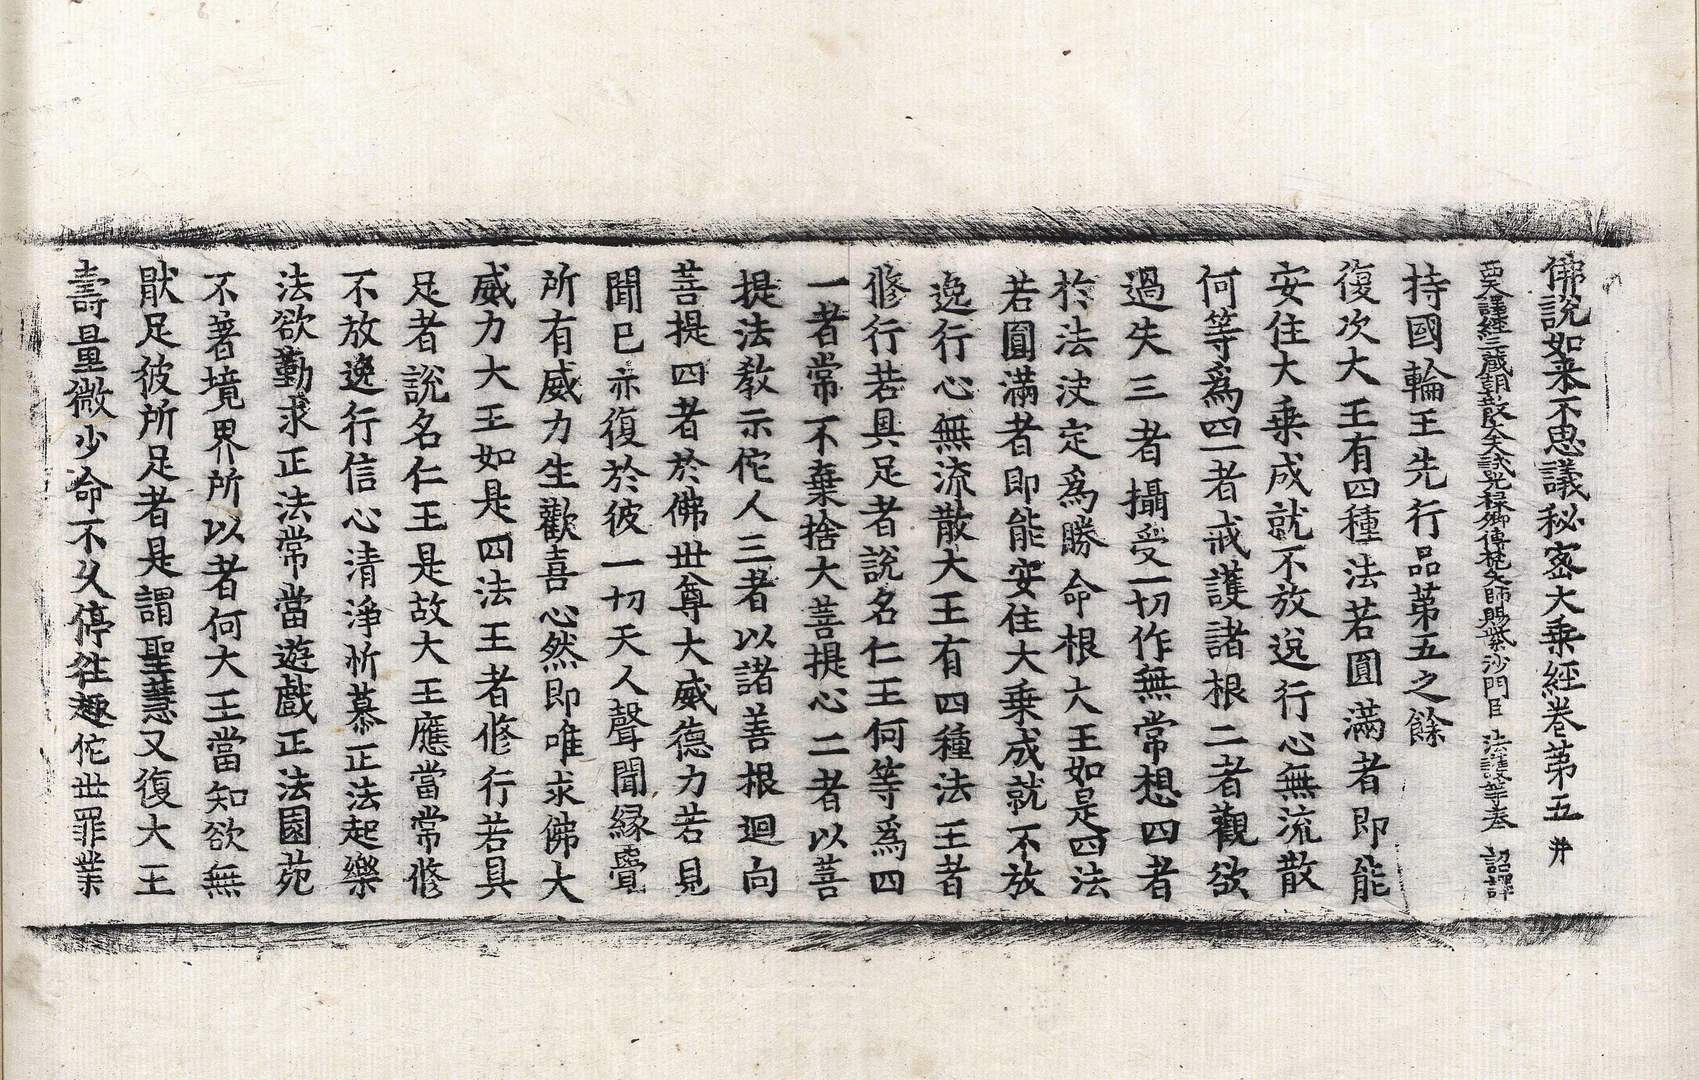 佛說如来不思議秘密大乘經卷第五 幷
西天譯經三藏朝散大夫試光祿卿傳梵大師賜紫沙門臣 法護等奉 詔譯
持國輪王先行品第五之餘
復次大王有四種法若圓滿者即能
安住大乘成就不放逸行心無流散
何等爲四一者戒護諸根二者觀欲
過失三者攝受一切作無常想四者
於法决定爲勝命根大王如是四法
若圓滿者即能安住大乘成就不放
逸行心無流散大王有四種法王者
修行若具足者說名仁王何等爲四
一者常不棄捨大菩提心二者以菩
提法教示佗人三者以諸善根迴向
菩提四者於佛世尊大威德力若見
聞已亦復於彼一切天人聲聞緣覺
所有威力生歡喜心然即唯求佛大
威力大王如是四法王者修行若具
足者說名仁王是故大王應當常修
不放逸行信心清淨忻慕正法起樂
法欲勤求正法常當遊戲正法園苑
不著境界所以者何大王當知欲無
猒足彼所足者是謂聖慧又復大王
壽量微少命不久停往趣佗世罪業